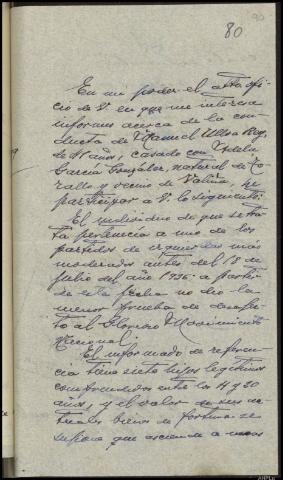 80
En mi poder el atto ofi-
cio de V. en que me interesa
informes acerca de la con-
ducta de Manuel Ulloa
de años, casado con
García González, natural de
y vecino de he
participar a V. lo siguiente:
El individuo de que se tra-
ta pertenecía a uno de los
partidos de izquierdas más
moderados antes del 18 de
Julio del año 1936. a partir
de esta fecha no dio la
menor prueba de desafec-
to al Glorioso Movimiento
Nacional.
El informado de referen-
cia tiene siete hijos legítimos
comprendidos entre los 4 y 20
años, y el valor de sus ac-
tuales bienes de fortuna se
supone que asciende a unas